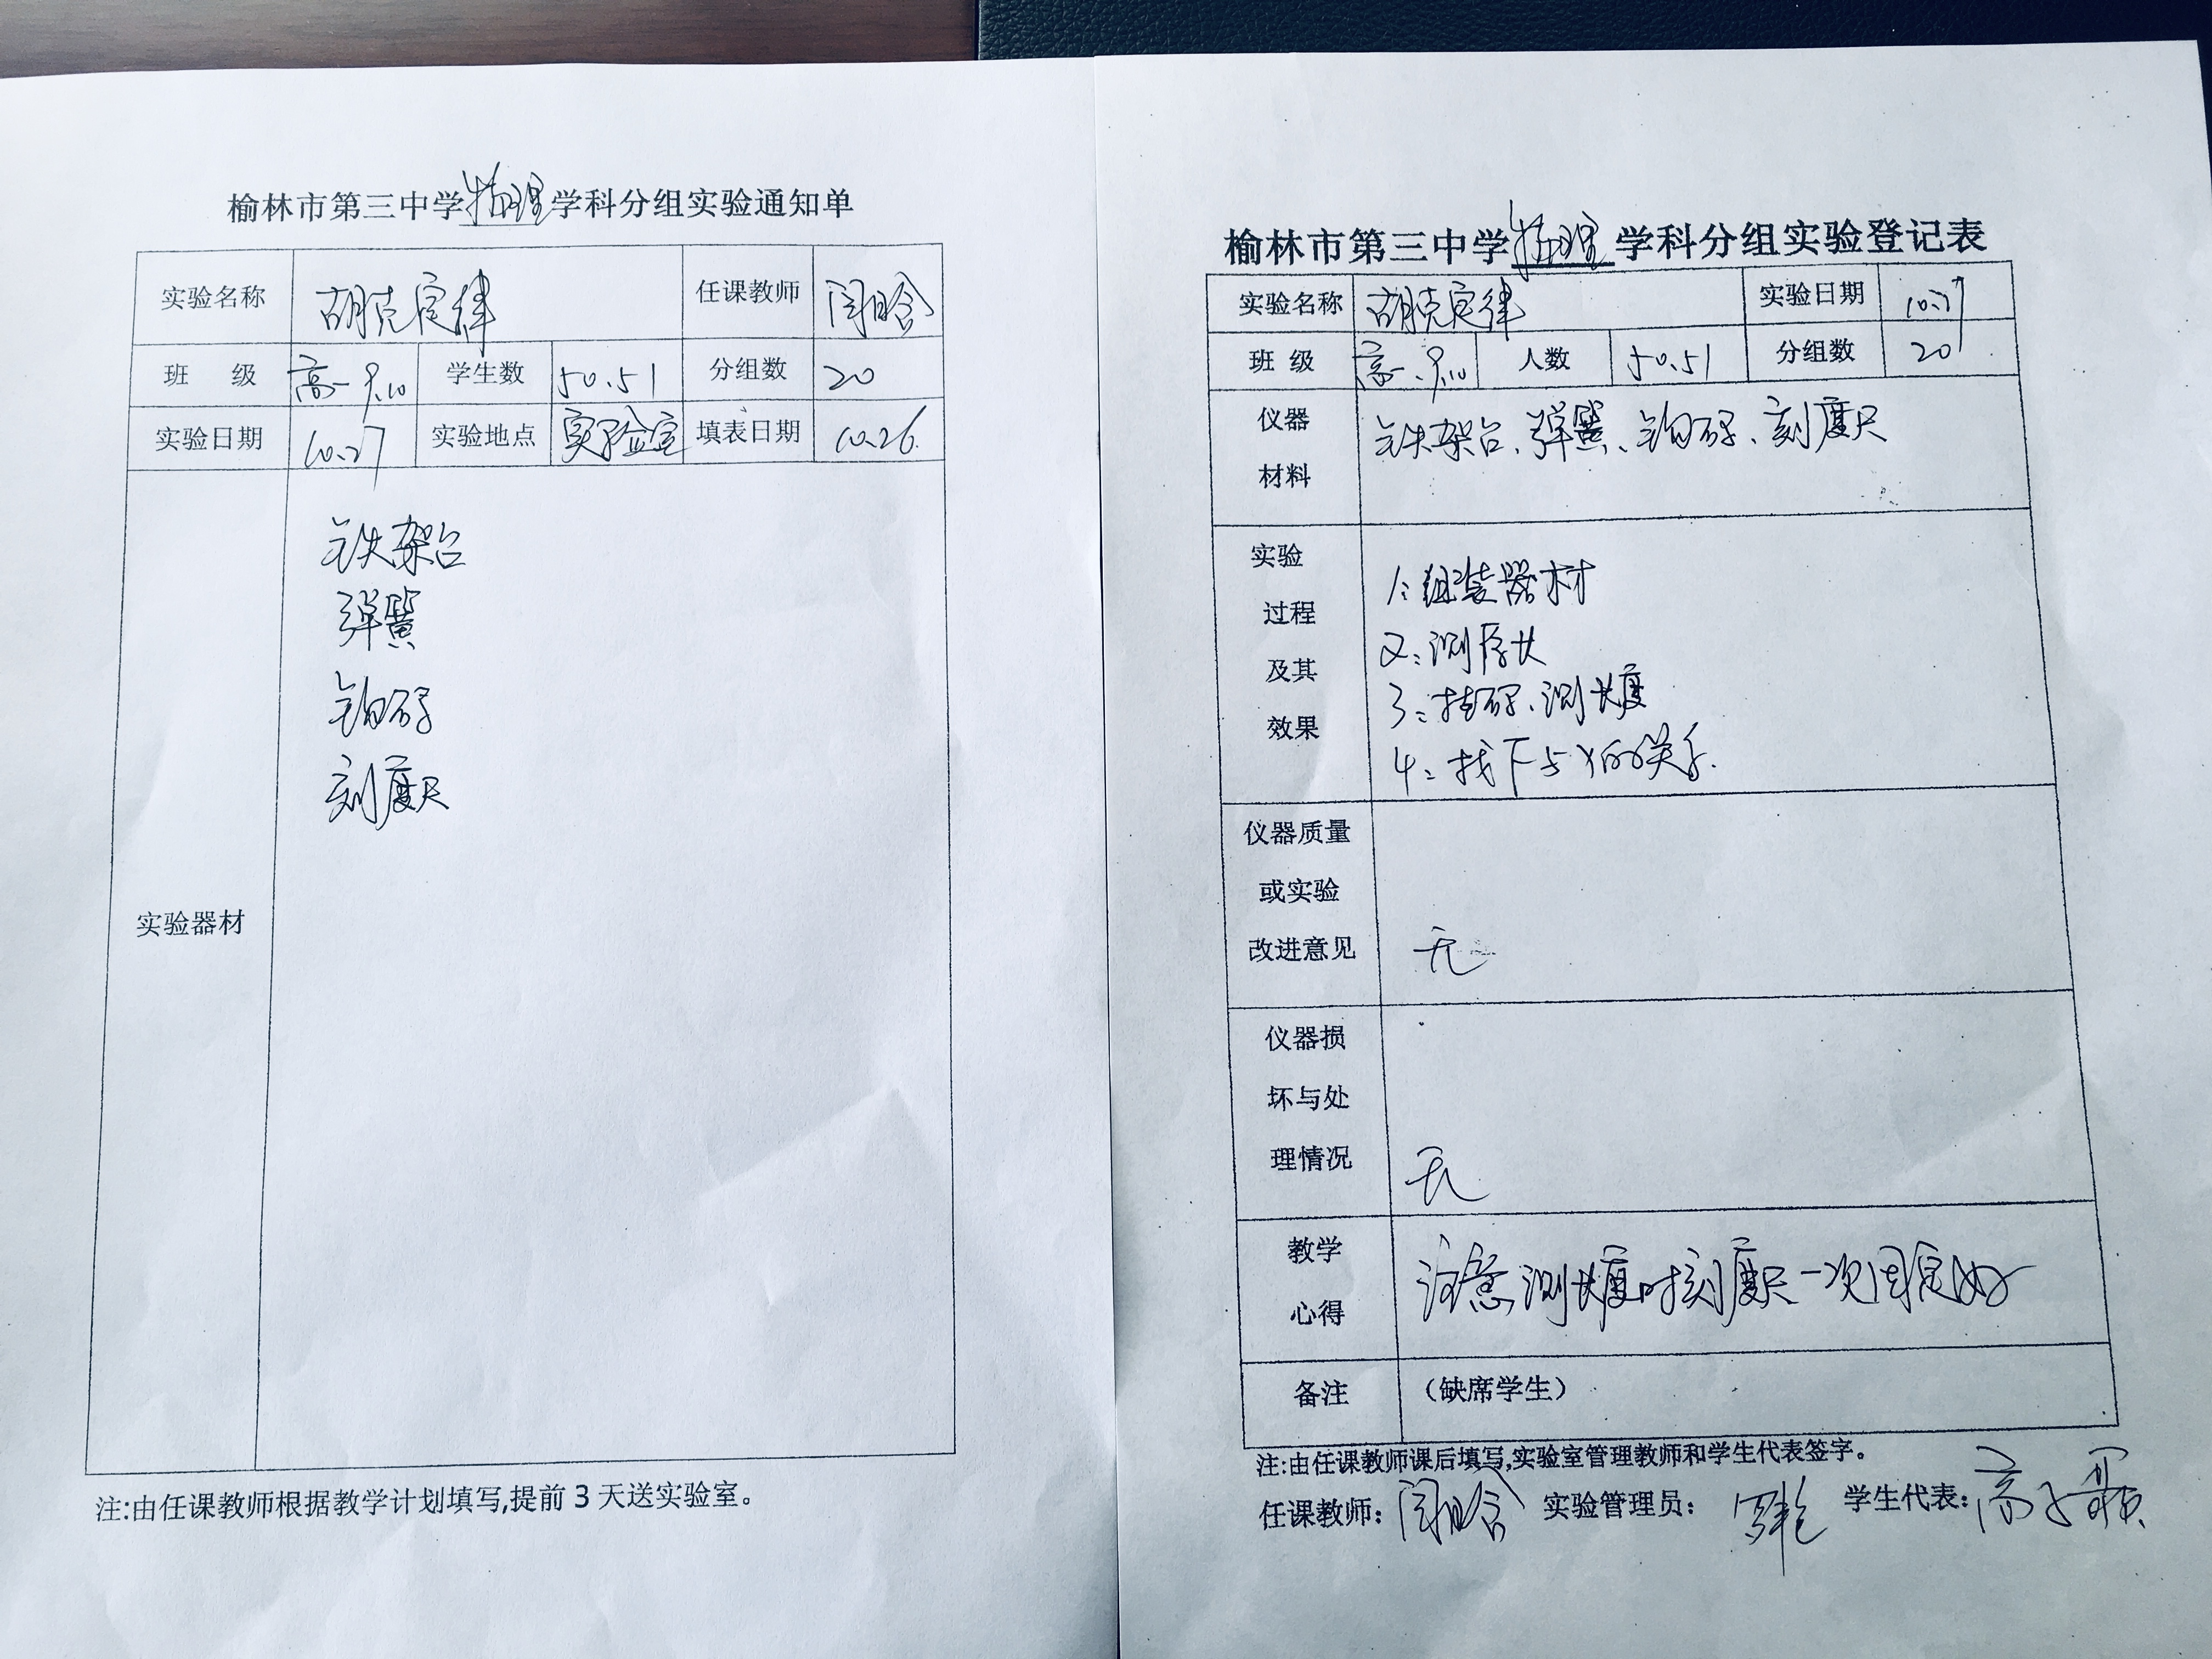 榆林市第三中学物理学科分组实验通知单
实验名称 胡克定律 任课教师 闫晗
班 级 高一 9.10 学生数 50.51 分组数 20
实验日期 10.27 实验地点 实验室 填表日期 10.26.
实验器材
铁架台
弹簧
钩码
刻度尺
注:由任课教师根据教学计划填写,提前3天送实验室。
榆林市第三中学物理学科分组实验登记表
实验名称 胡克定律 实验日期 10.27
班 级 高一、9.10 人数 50.51 分组数 20
仪器
材料
铁架台、弹簧、钩码、刻度尺
实验
过程
及其
效果
1:组装器材
2:测原长
3:挂码、测长度
4:找F与x的关系.
仪器质量
或实验
改进意见
无
仪器损
坏与处
理情况
无
教学
心得
注意测长度时刻度尺一次固定好
备注 (缺席学生)
注:由任课教师课后填写,实验室管理教师和学生代表签字。
任课教师: 闫晗 实验管理员: 学生代表: 高子